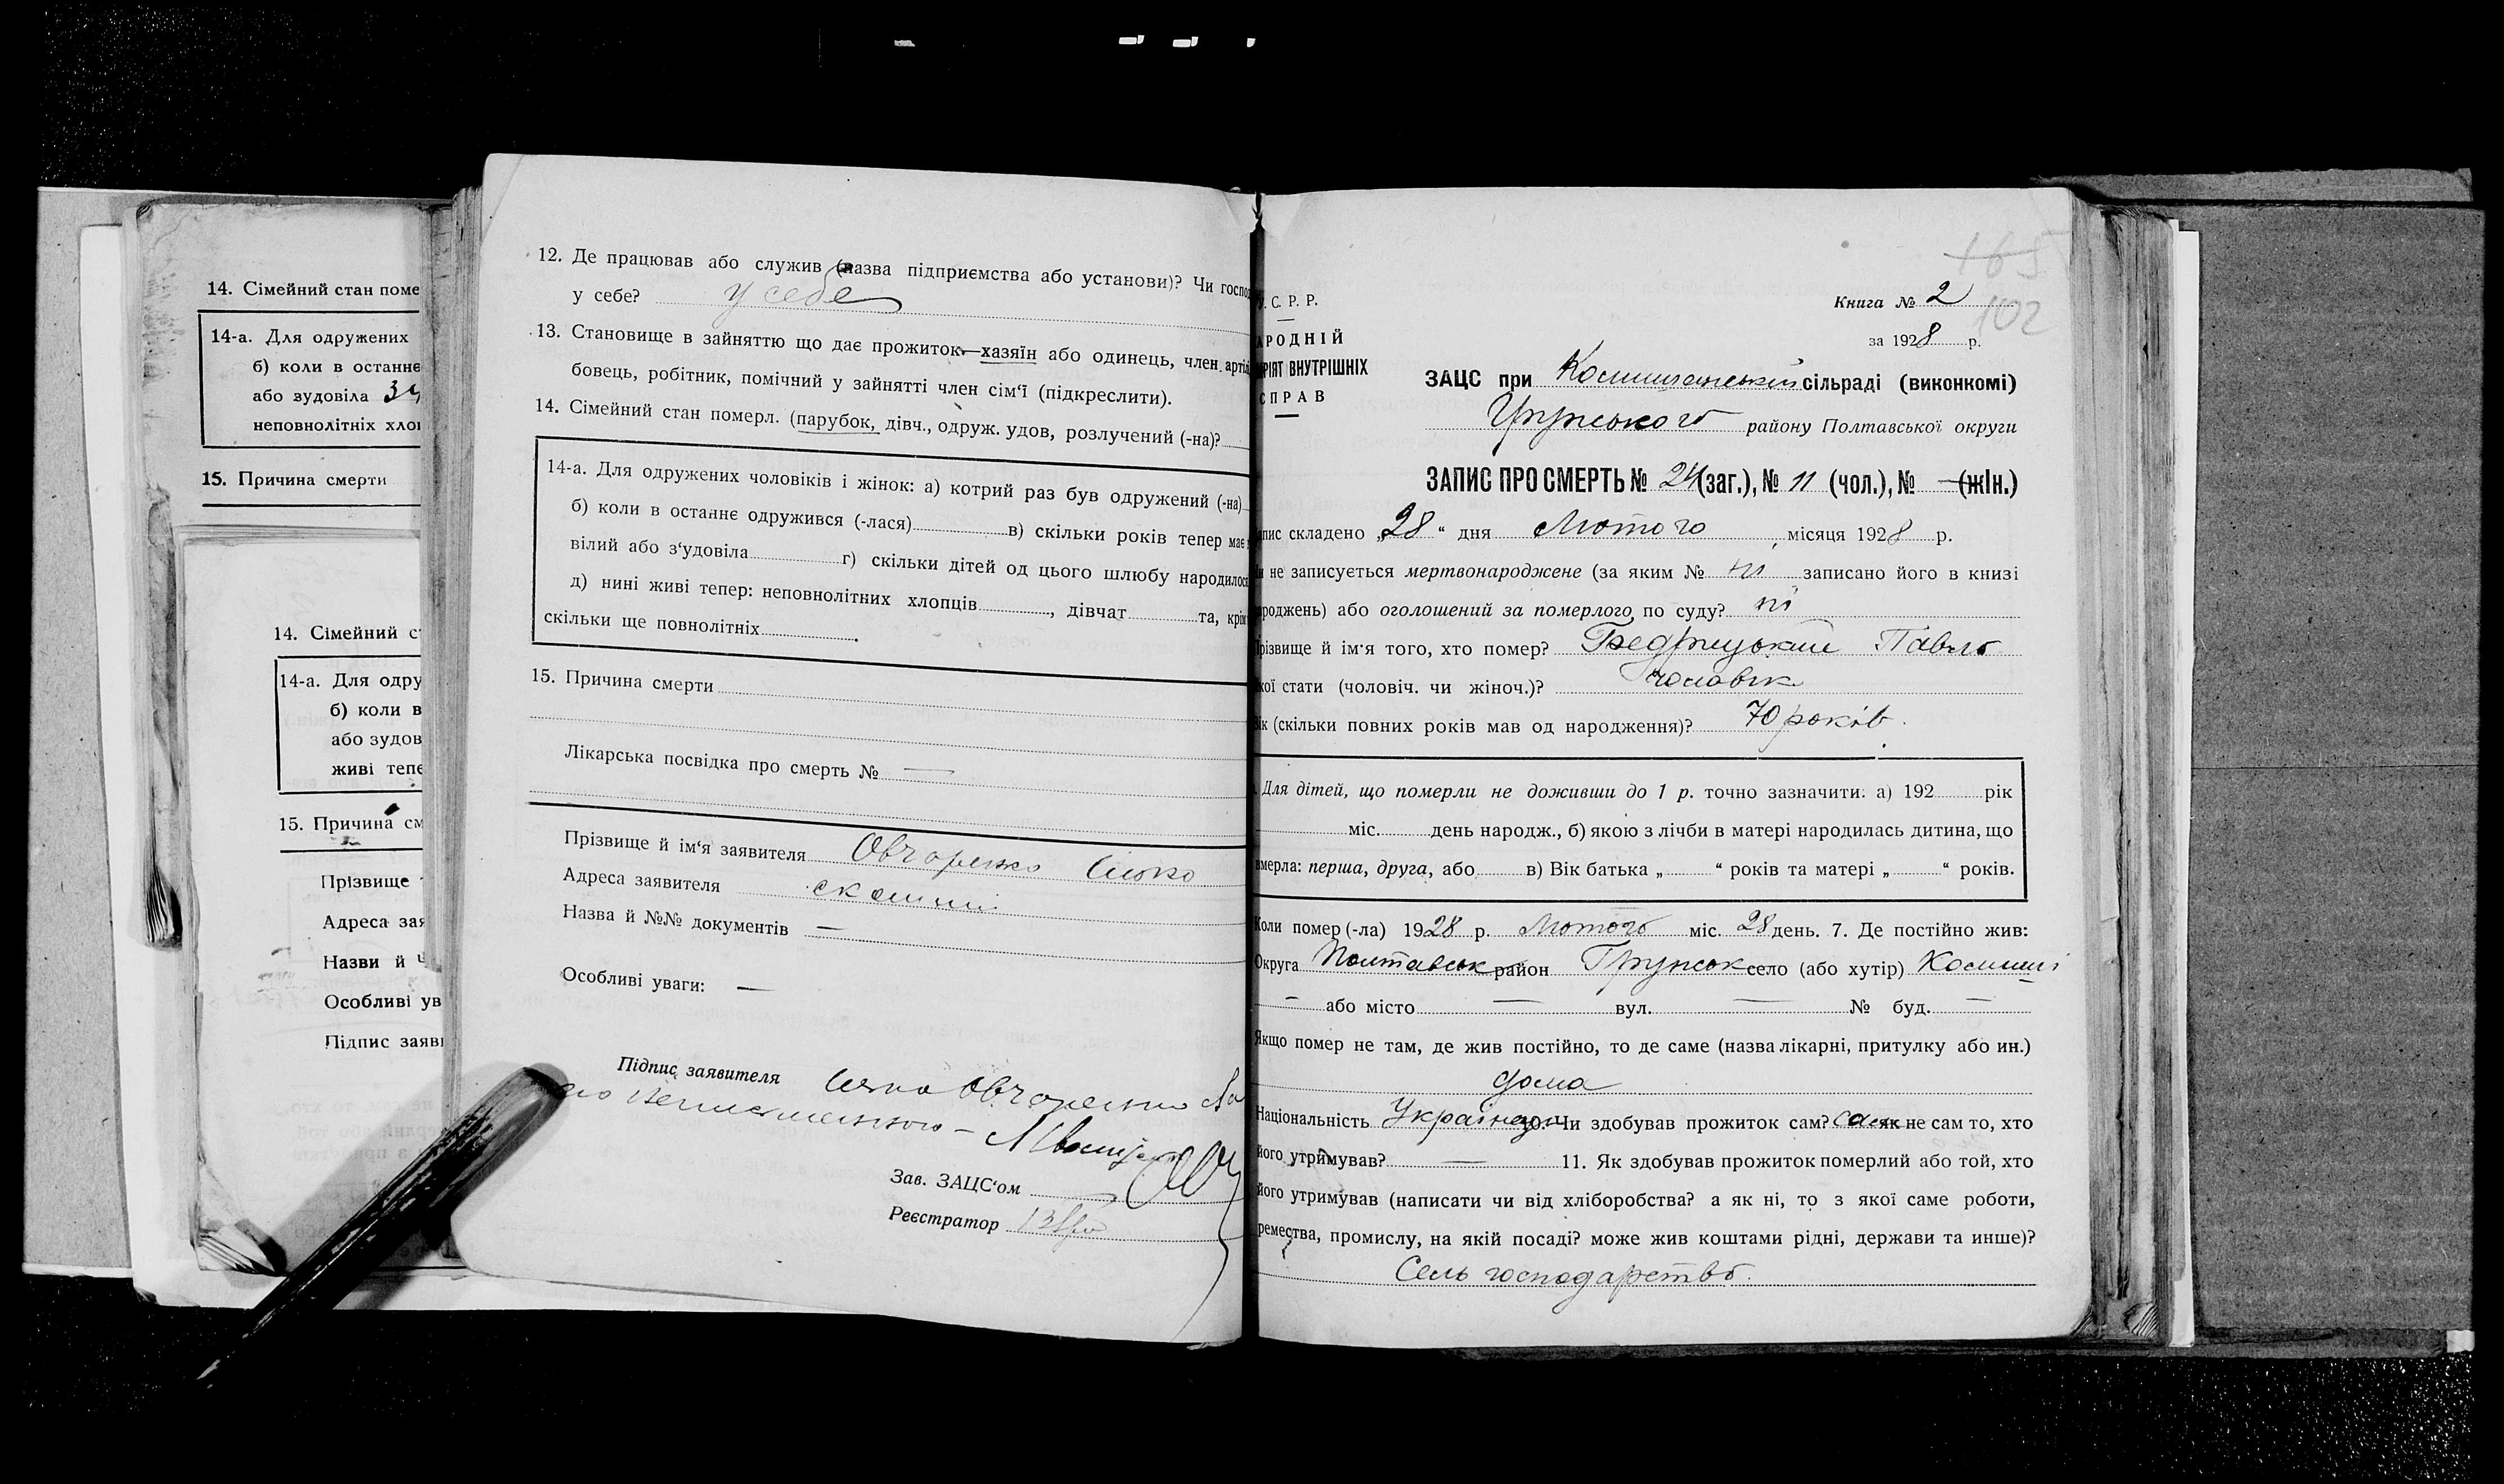 14. Сімейний стан поме
14-а. Для одружених
б) коли в останнє
або зудовіла
неповнолітніх хло
15. Причина смерти
14. Сімейний с
14-а. Для одру
б) коли в
або зудов
живі тепе
15. Причина см
Прізвище
Адреса зая
Назви й
Особливі ув
Підпис заяв
12. Де працював або служив (назва підприємства або установи)? Чи госпо
у себе? у себе
13. Становище в зайняттю що дає прожиток—хазяїн або одинець, член артіл
бовець, робітник, помічний у зайнятті член сім‘ї (підкреслити).
14. Сімейний стан померл. (парубок, дівч., одруж. удов, розлучений (-на)?
14-а. Для одружених чоловіків і жінок: а) котрий раз був одружений (-на)
б) коли в останнє одружився (-лася) в) скільки років тепер має
вілий або з‘удовіла г) скільки дітей од цього шлюбу народилося
д) нині живі тепер: неповнолітних хлопців, дівчат та, крім
скільки ще повнолітніх.
15. Причина смерти
Лікарська посвідка про смерть № —
Прізвище й ім‘я заявителя Овчаренко
Адреса заявителя
Назва й №№ документів —
Особливі уваги: —
Підпис заявителя Овчаренко
Зав. ЗАЦС‘ом
Реєстратор
165
У. С. Р. Р.
Книга № 2
102
за 1928 р.
АРОДНІЙ
РІЯТ ВНУТРІШНІХ
СПРАВ
ЗАЦС при сільраді (виконкомі)
Грунського району Полтавської округи
ЗАПИС ПРО СМЕРТЬ № 24 (заг.), № 11 (чол.), № — (жін.)
апис складено „28“ дня Лютого місяця 1928 р.
и не записується мертвонароджене (за яким № ні записано його в книзі
роджень) або оголошений за померлого по суду? ні
різвище й ім‘я того, хто помер? Бедрицький Павло
кої стати (чоловіч. чи жіноч.)? чоловік
Вік (скільки повних років мав од народження)? 70 років.
Для дітей, що померли не доживши до 1 р. точно зазначити: а) 192 рік
міс. день народж., б) якою з лічби в матері народилась дитина, що
вмерла: перша, друга, або в) Вік батька „ “ років та матері „ “ років.
Коли помер (-ла) 1928 р. Лютого міс. 28 день. 7. Де постійно жив:
Округа Полтавськ район Грунськ село (або хутір) Комиші
— або місто — вул. — № буд. —
Якщо помер не там, де жив постійно, то де саме (назва лікарні, притулку або ин.)
дома
Національність Українец 10. Чи здобував прожиток сам? сам як не сам то, хто
його утримував? — 11. Як здобував прожиток померлий або той, хто
його утримував (написати чи від хліборобства? а як ні, то з якої саме роботи,
ремества, промислу, на якій посаді? може жив коштами рідні, держави та инше)?
Сель господарство.